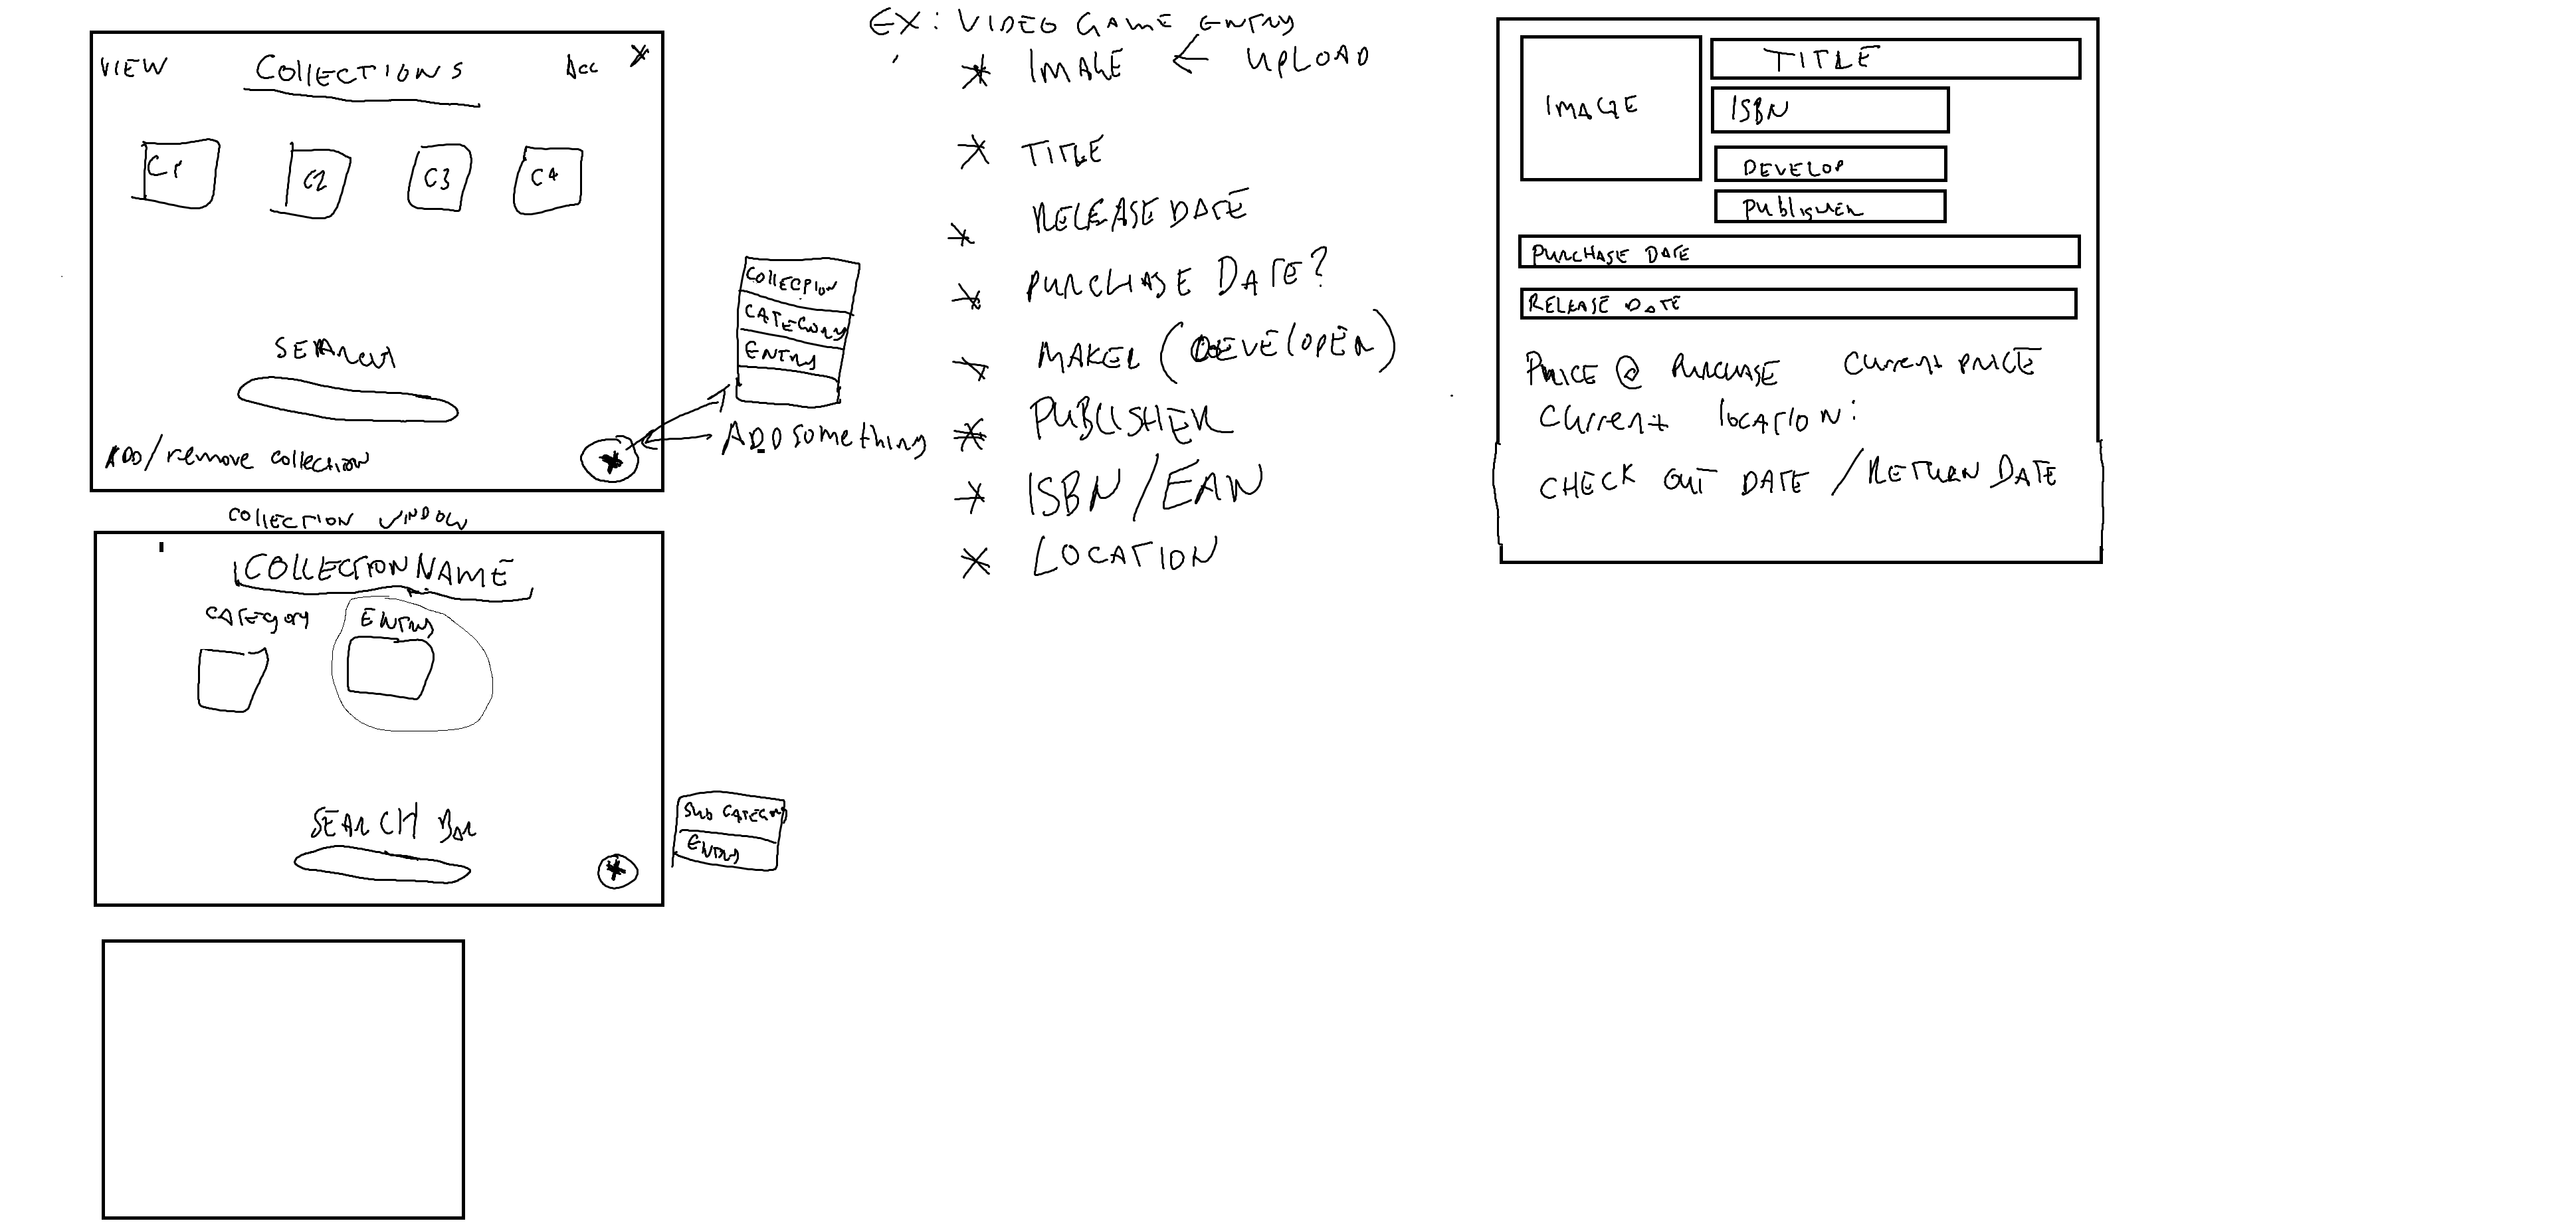 VIEW COLLECTIONS Acc X
C1 C2 C3 C4
SEARCH
ADD/remove collection
COLLECTION
CATEGORY
ENTRY
ADD something
COLLECTION WINDOW
COLLECTION NAME
CATEGORY ENTRY
SEARCH BAR
SUB CATEGORY
ENTRY
EX: VIDEO GAME ENTRY
* IMAGE ← UPLOAD
* TITLE
* RELEASE DATE
* PURCHASE DATE?
* MAKER (DEVELOPER)
* PUBLISHER
* ISBN/EAN
* LOCATION
IMAGE
TITLE
ISBN
DEVELOP
PUBLISHER
PURCHASE DATE
RELEASE DATE
PRICE @ PURCHASE Current PRICE
Current location:
CHECK OUT DATE / RETURN DATE